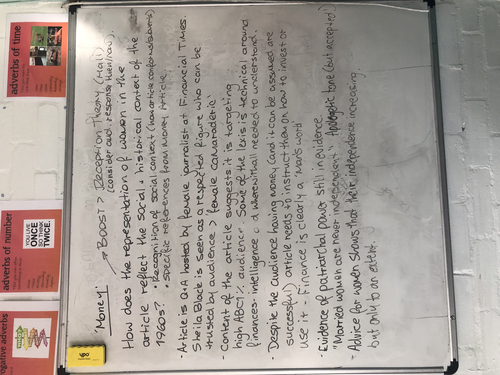 adverbs of time
adverbs of number
YOU LIVE
ONCE
SO THINK
TWICE.
negative adverbs
'Money'
→ BOOST > Reception Theory (Hall)
(consider aud. response then/now).
How does the representation of women in the
article reflect the social, historical context of the
1960s?
• Recognition of social context (how article conforms/subverts)
• specific references from Money article.
• Article is Q+A hosted by female journalist at Financial Times.
Sheila Black is seen as a respected figure who can be
trusted by audience > 'female camaraderie'
• Content of the article suggests it is targeting
high ABC1% audience. Some of the lexis is technical around
finances - intelligence and wherewithall needed to understand.
• Despite the audience having money (and it can be assumed are
successful) article needs to instruct them on how to invest or
use it - Finance is clearly a 'man's world'
• Evidence of patriarchal power still in evidence
"Married women are never independent" Apologetic tone (but accepted)
• Advice for women shows that their independence increasing
but only to an extent.